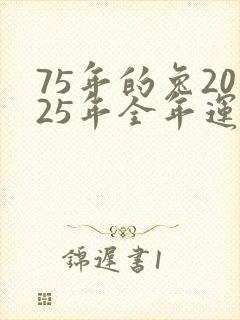 75年的兔20
25年全年運
錦遲書1